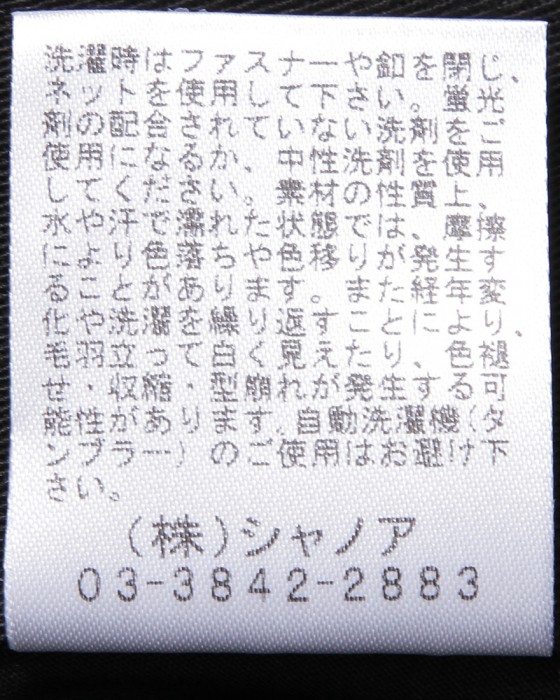 洗濯時はファスナーや釦を閉じ、
ネットを使用して下さい。蛍光
剤の配合されていない洗剤をご
使用になるか、中性洗剤を使用
して下さい。素材の性質上、
水や汗で濡れた状態では、摩擦
により色落ちや色移りが発生す
ることがあります。また経年変
化や洗濯を繰り返すことにより、
毛羽立って白く見えたり、色褪
せ・収縮・型崩れが発生する可
能性があります。自動洗濯機(タ
ンブラー)のご使用はお避け下
さい。
(株)シャノア
03-3842-2883